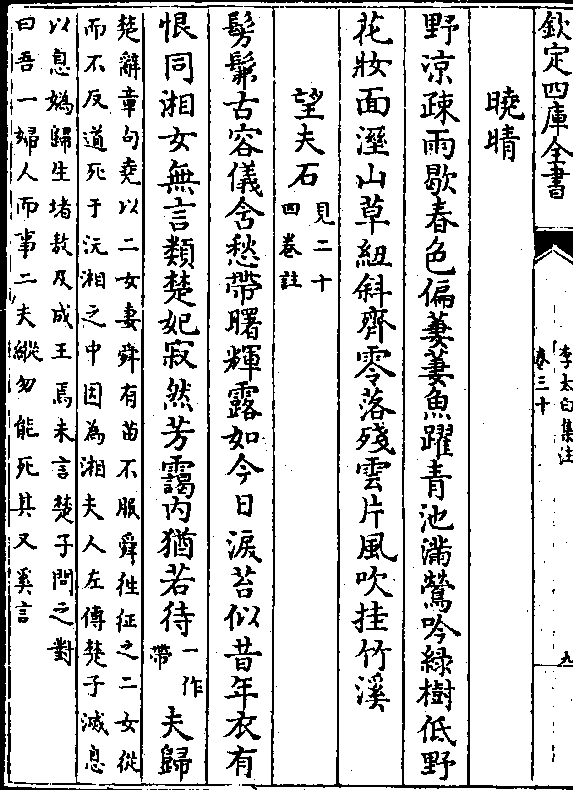 欽定四庫全書
李太白集注
卷三十
九
曉晴
野涼疎雨歇春色偏萋萋魚躍青池滿鶯吟緑樹低野
花妝面溼山草紐斜齊零落殘雲片風吹挂竹溪
望夫石見二十四卷註
髣髴古容儀含愁帶曙輝露如今日淚苔似昔年衣有
恨同湘女無言類楚妃寂然芳靄内猶若待一作帶夫歸
楚辭章句堯以二女妻舜有苗不服舜徃征之二女從
而不反道死于沅湘之中因為湘夫人左傳楚子滅息
以息媯歸生堵敖及成王焉未言楚子問之對
曰吾一婦人而事二夫縱勿能死其又奚言